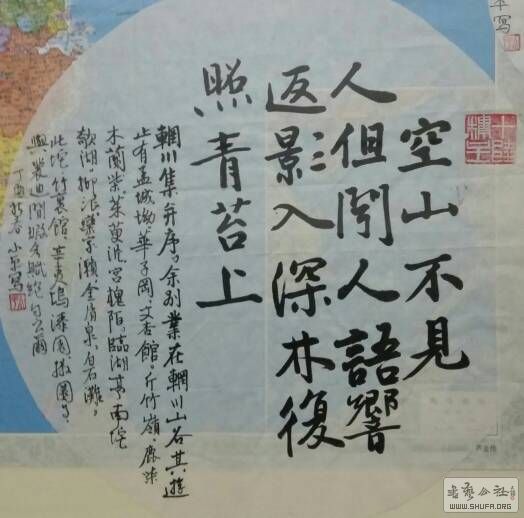 平寫
空山不見
人但聞人語響
返影入深林復
照青苔上
輞川集并序。余别業在輞川山谷其遊
止有孟城坳華子岡文杏館。斤竹嶺。鹿柴
木蘭柴茱萸沜宮槐陌。臨湖亭南垞
欹湖。柳浪。欒家瀨金屑泉。白石灘。
北垞。竹裏館。辛夷塢漆園。椒園等。
與裴迪閒暇各賦絕句云爾
丁酉新春小平寫
書藝公社
WWW.SHUFA.ORG